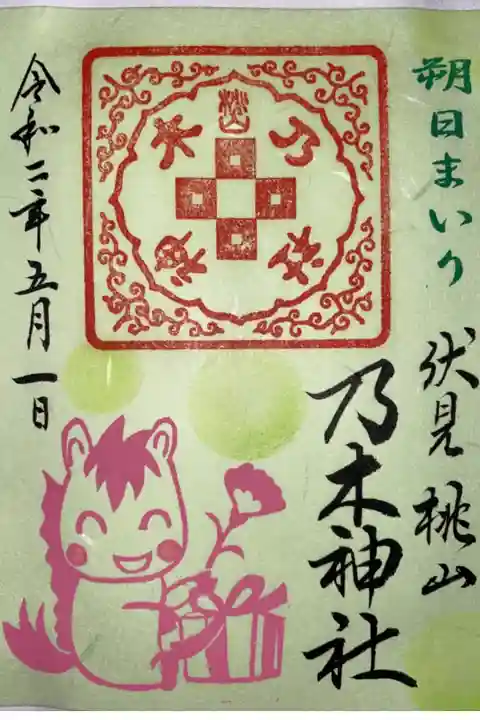 朔日まいり
伏見桃山
乃木神社
令和二年五月一日